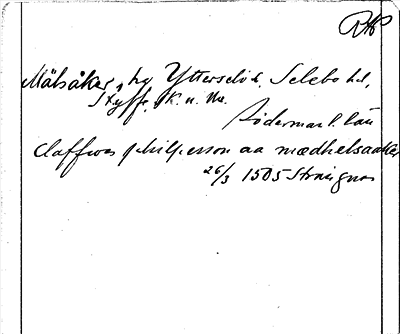 RAP
Mälsåker, hg Ytterselö s. Selebo hd,
Styffe K. u. Un.
Söderman l. län
claffwes philpusson aa mædhelsaaker
26/3 1505 Strengnæs